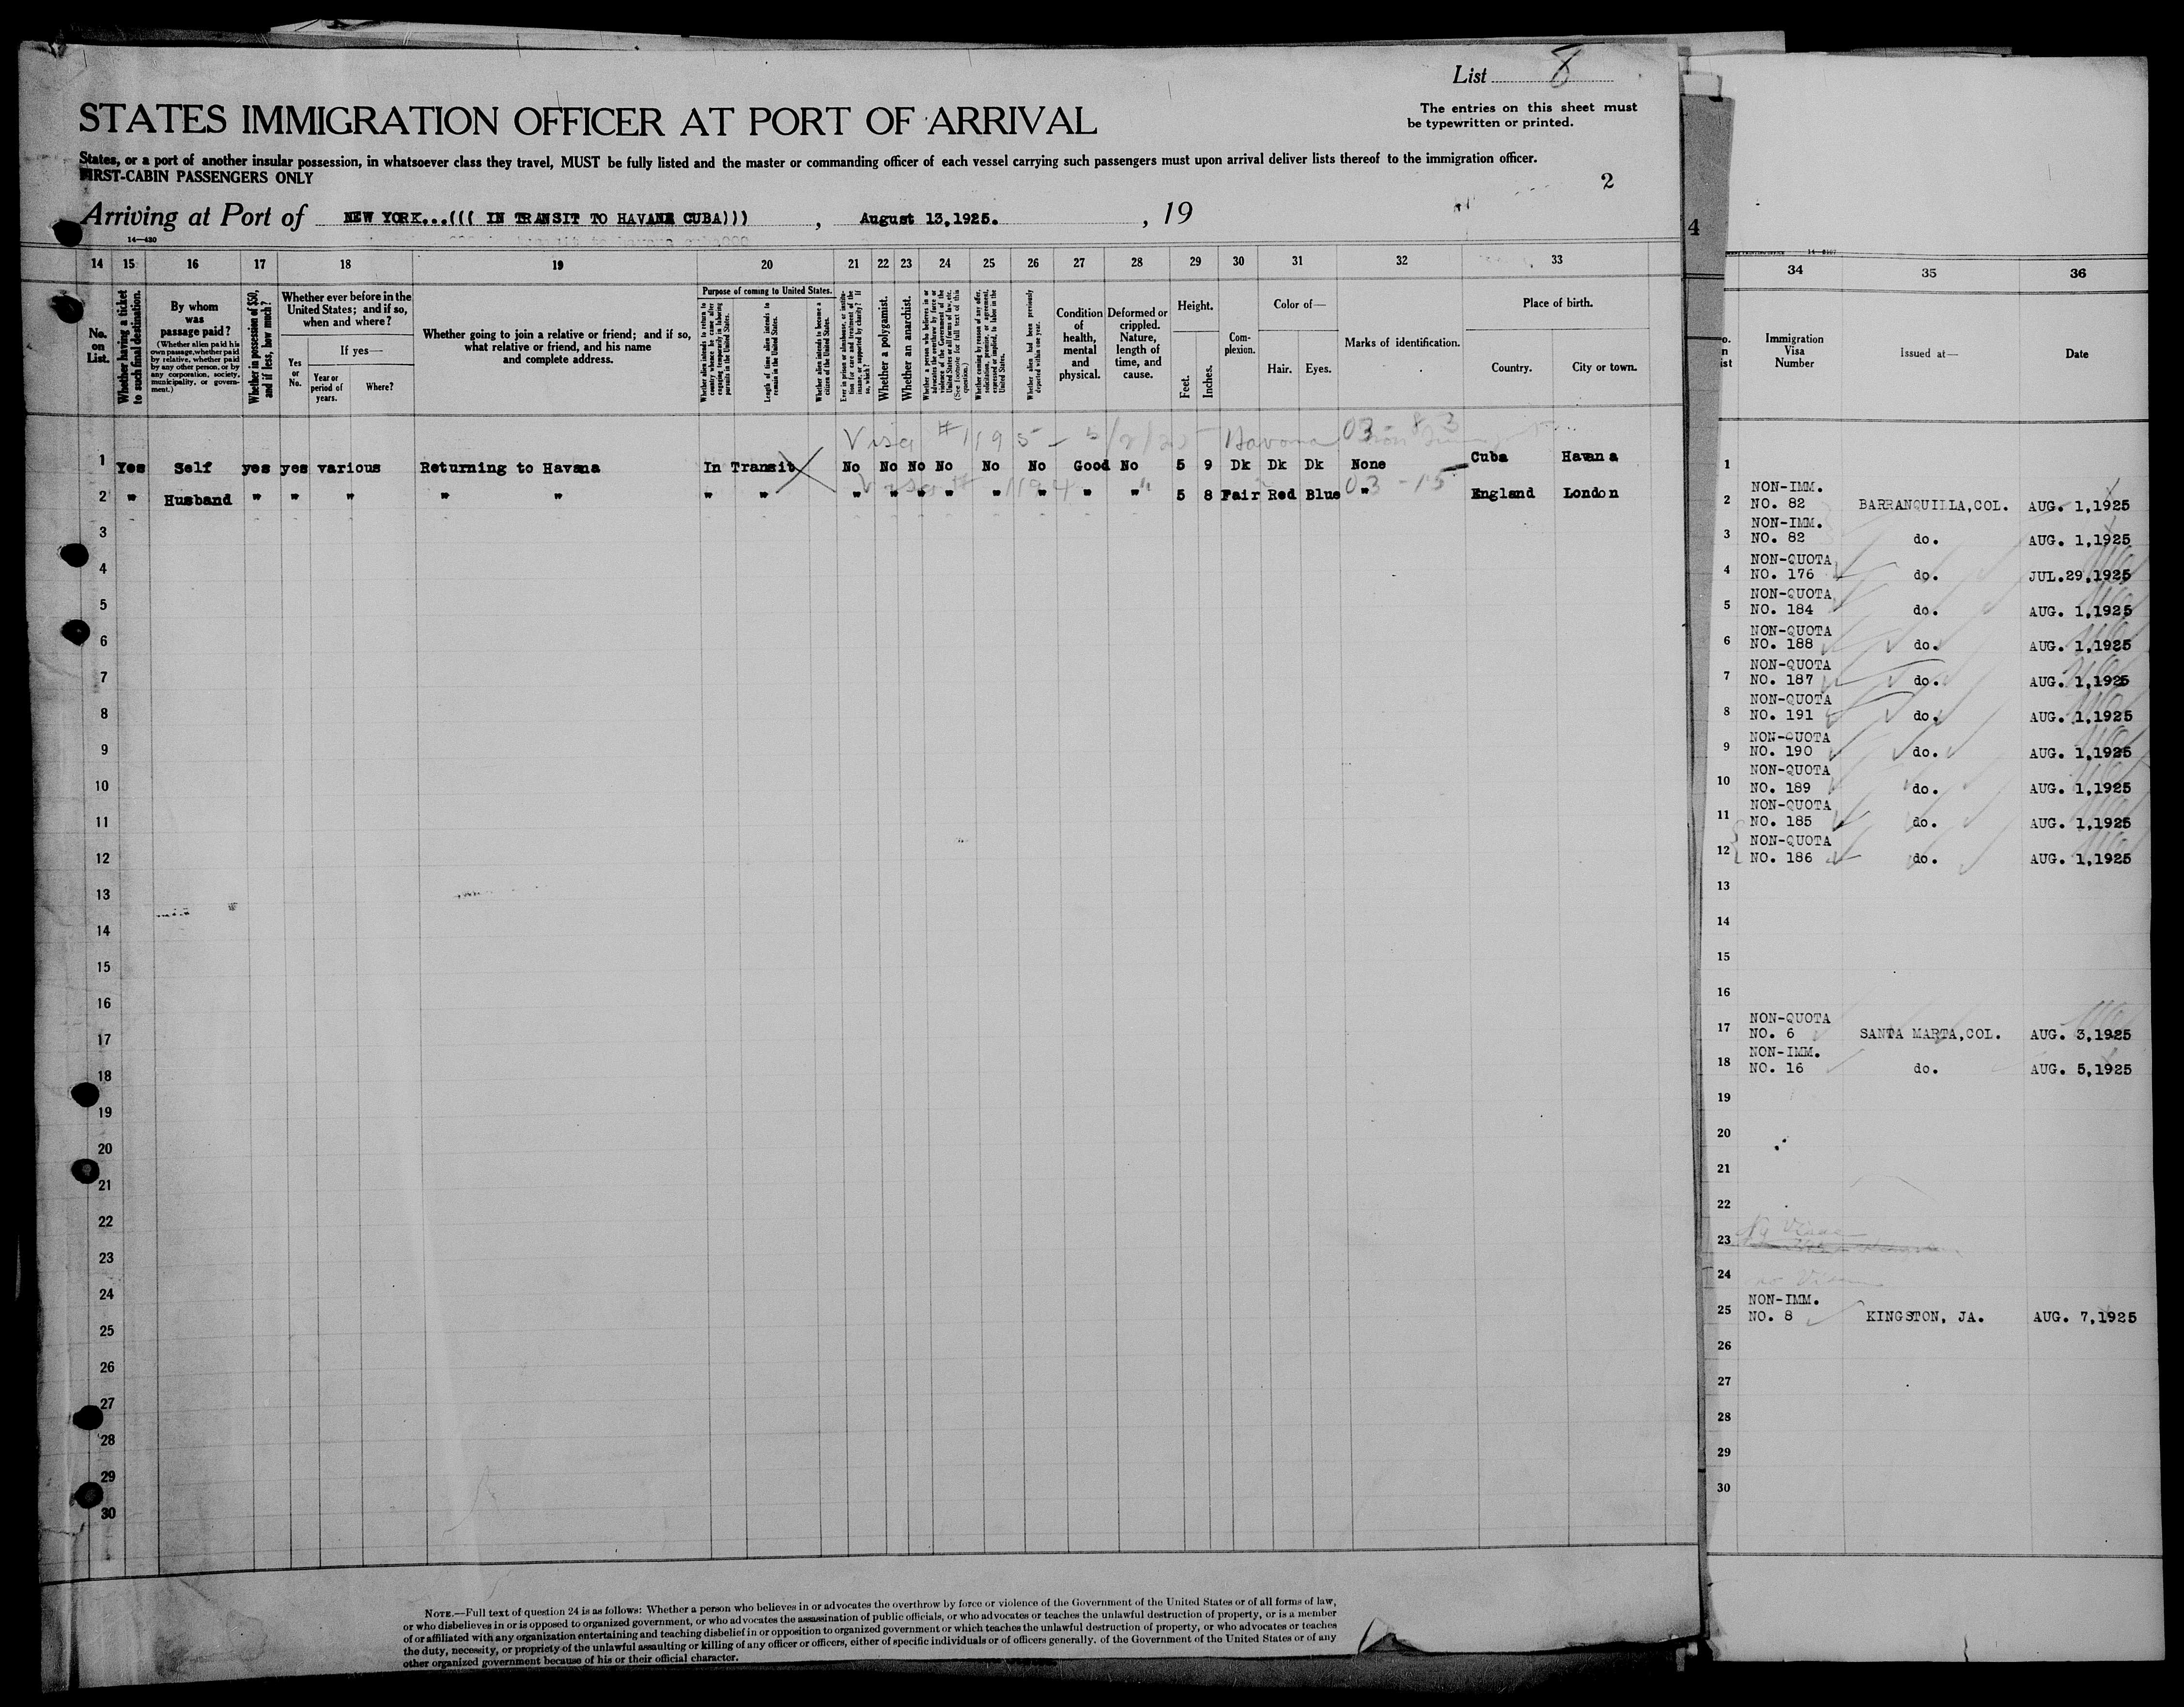 List 8
The entries on this sheet must
be typewritten or printed.
STATES IMMIGRATION OFFICER AT PORT OF ARRIVAL
States, or a port of another insular possession, in whatsoever class they travel, MUST be fully listed and the master or commanding officer of each vessel carrying such passengers must upon arrival deliver lists thereof to the immigration officer.
FIRST-CABIN PASSENGERS ONLY
2
Arriving at Port of NEW YORK...((( IN TRANSIT TO HAVANA CUBA))) , August 13,1925. , 19
14—430
4
14 15 16 17 18 19 20 21 22 23 24 25 26 27 28 29 30 31 32 33
34 35 36
No. on List.
Whether having a ticket to such final destination.
By whom was passage paid?
(Whether alien paid his own passage, whether paid by relative, whether paid by any other person, or by any corporation, society, municipality, or government.)
Whether in possession of $50, and if less, how much?
Whether ever before in the United States; and if so, when and where?
Yes or No.
If yes—
Year or period of years.
Where?
Whether going to join a relative or friend; and if so, what relative or friend, and his name and complete address.
Purpose of coming to United States.
Whether alien intends to return to country whence he came after engaging temporarily in laboring pursuits in the United States.
Length of time alien intends to remain in the United States.
Whether alien intends to become a citizen of the United States.
Ever in prison or almshouse, or institution for care and treatment of the insane, or supported by charity? If so, which?
Whether a polygamist.
Whether an anarchist.
Whether a person who believes in or advocates the overthrow by force or violence of the Government of the United States or all forms of law, etc. (See footnote for full text of this question.)
Whether coming by reason of any offer, solicitation, promise, or agreement, expressed or implied, to labor in the United States.
Whether alien had been previously deported within one year.
Condition of health, mental and physical.
Deformed or crippled. Nature, length of time, and cause.
Height.
Feet.
Inches.
Complexion.
Color of—
Hair.
Eyes.
Marks of identification.
Place of birth.
Country.
City or town.
Immigration Visa Number
Issued at—
Date
Visa #1195 - 5/2/25 Havana 03 - 83
1 Yes Self yes yes various Returning to Havana In Transit No No No No No No Good No 5 9 Dk Dk Dk None Cuba Havana
Visa # 1194 03 - 15
2 " Husband " " " " " " " " " " " " " " " 5 8 Fair Red Blue " England London
3
4
5
6
7
8
9
10
11
12
13
14
15
16
17
18
19
20
21
22
23
24
25
26
27
28
29
30
1
NON-IMM.
2 NO. 82 BARRANQUILLA,COL. AUG. 1,1925
NON-IMM.
3 NO. 82 do. AUG. 1,1925
NON-QUOTA
4 NO. 176 do. JUL.29,1925
NON-QUOTA
5 NO. 184 do. AUG. 1,1925
NON-QUOTA
6 NO. 188 do. AUG. 1,1925
NON-QUOTA
7 NO. 187 do. AUG. 1,1925
NON-QUOTA
8 NO. 191 do. AUG. 1,1925
NON-QUOTA
9 NO. 190 do. AUG. 1,1925
NON-QUOTA
10 NO. 189 do. AUG. 1,1925
NON-QUOTA
11 NO. 185 do. AUG. 1,1925
NON-QUOTA
12 NO. 186 do. AUG. 1,1925
13
14
15
16
NON-QUOTA
17 NO. 6 SANTA MARTA,COL. AUG. 3,1925
NON-IMM.
18 NO. 16 do. AUG. 5,1925
19
20
21
22
23
24 no Visa
NON-IMM.
25 NO. 8 KINGSTON, JA. AUG. 7,1925
26
27
28
29
30
NOTE.—Full text of question 24 is as follows: Whether a person who believes in or advocates the overthrow by force or violence of the Government of the United States or of all forms of law,
or who disbelieves in or is opposed to organized government, or who advocates the assassination of public officials, or who advocates or teaches the unlawful destruction of property, or is a member
of or affiliated with any organization entertaining and teaching disbelief in or opposition to organized government or which teaches the unlawful destruction of property, or who advocates or teaches
the duty, necessity, or propriety of the unlawful assaulting or killing of any officer or officers, either of specific individuals or of officers generally, of the Government of the United States or of any
other organized government because of his or their official character.